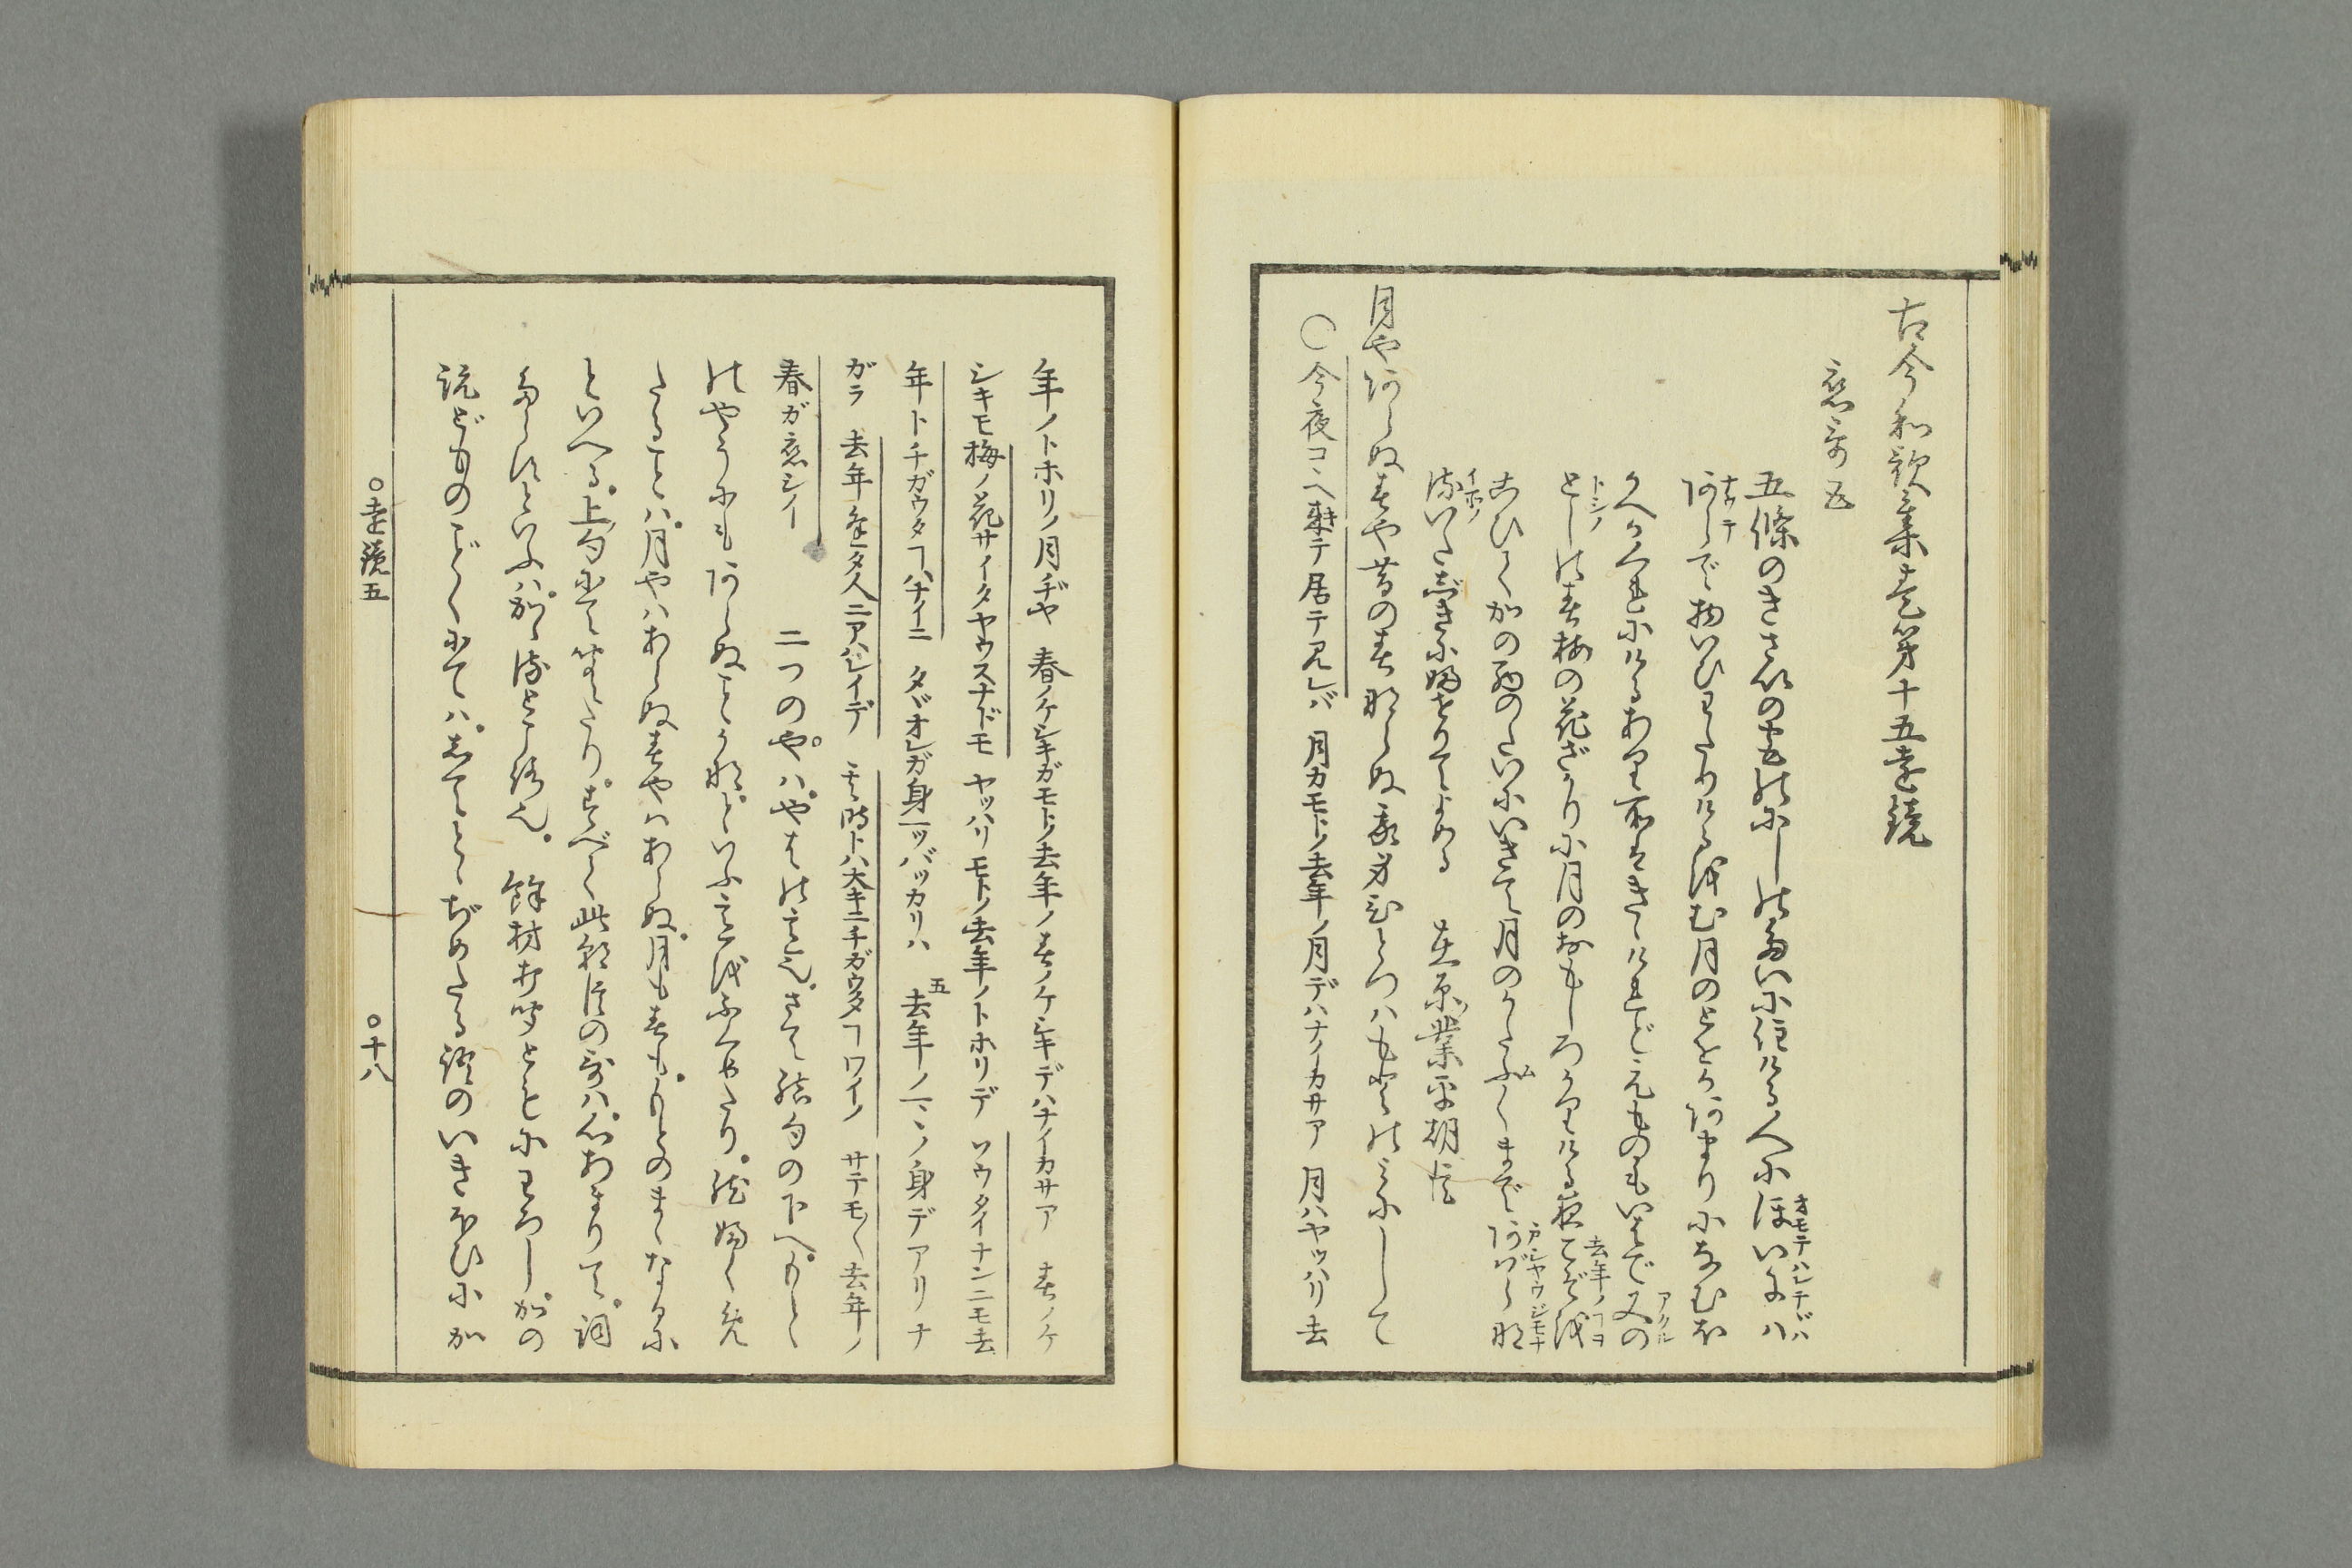 古今和歌集巻第十五遠鏡
恋哥五
五條のきさいの宮のにしのたいに住ける人にほいにハ
オモテハレテデハ
あらで物いひわたりけるをむ月のとをかあまりになむほ
ナウテ
かへかくれにけるあり所はきゝけれどえものもいはで又の
アクル
としの春梅の花ざかりに月のおもしろかりける夜こぞを
トシノ
去年ノヿヲ
こひてかのたいにいきて月のかたふくまであばらな
戸シヤウジモナ
るいたじきにふせりてよめる 在原業平朝臣
イホノ
月やあらぬ春や昔の春ならぬ我身ひとつハもとのみにして
〇今夜コヽヘ来テ居テ見レバ 月ガモトノ去年ノ月デハナイカサア 月ハヤッハリ去
年ノトホリノ月ヂヤ 春ノケシキガモトノ去年ノ春ノケシキデハナイカサア 春ノケ
シキモ梅ノ花サイタヤウスナドモ ヤッハリモトノ去年ノトホリデ ソウタイナンニモ去
年トチガウタヿハナイニ タヾオレガ身一ッバッカリハ 五去年ノマヽノ身デアリナ
ガラ 去年逢タ人ニアハレイデ 其時トハ大キニチガウタヿワイノ サテモ〳〵去年ノ
春ガ恋シイ 二つのや。ハ。やはの意也。さて結句の下へ。もとの
のやうにもあらぬことかな。といふ意をふくめたり。然ふくめ
たることハ。月やハあらぬ春やハあらぬ。月も春も。もとのまゝなるに
といへる。上句にて聞えたり。すべて此朝臣の哥ハ。心あまりて。詞
たらずといふハ。かゝるところ也。 餘材打聞ともにわろし。かの
説どものごとくにてハ。してとゝぢめたる語のいきほひにか
〇遠鏡五
〇十八